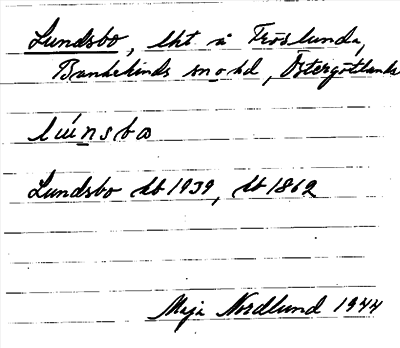 Lundsbo, lht å Tröslunda,
Bankekinds sn o hd, Östergötlands
lúnsbo
Lundsbo db 1939, lb 1862
Maja Nordlund 1944